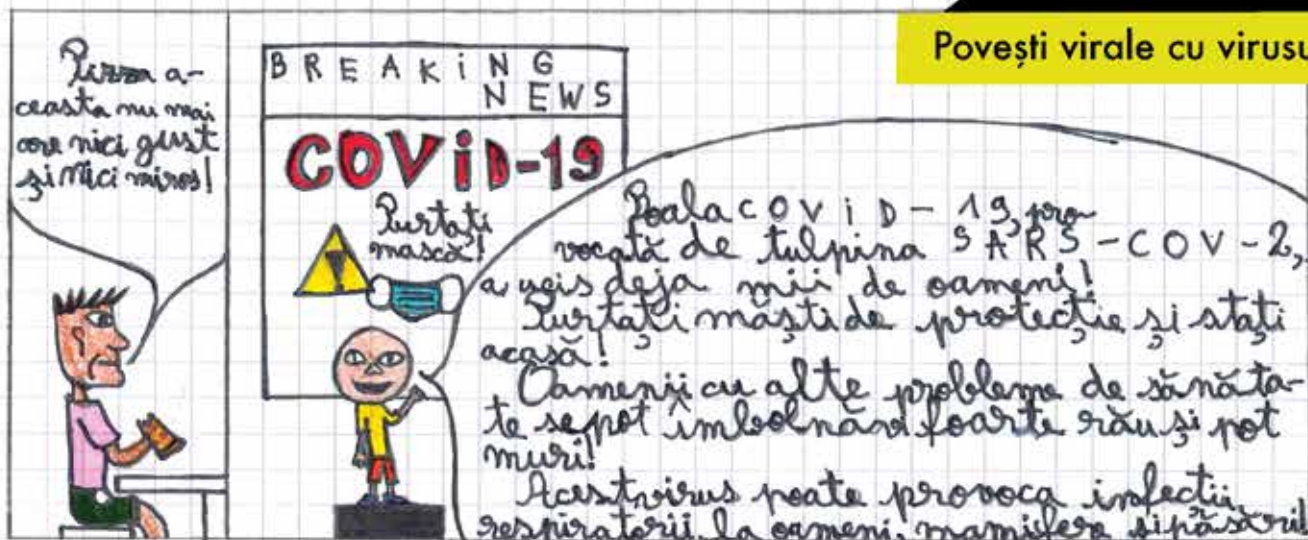 Povești virale cu virusu
Pizza a-
ceasta nu mai
are nici gust
și nici miros!
BREAKiNG
NEWS
COViD-19
Purtați
mască!
Boala COViD-19, pro
vocată de tulpina SARS-COV-2,
a ucis deja mii de oameni!
Purtați măști de protecție și stați
acasă!
Oamenii cu alte probleme de sănăta-
te se pot îmbolnăvi foarte rău și pot
muri!
Acest virus poate provoca infecții
respiratorii la oameni, mamifere și păsări!